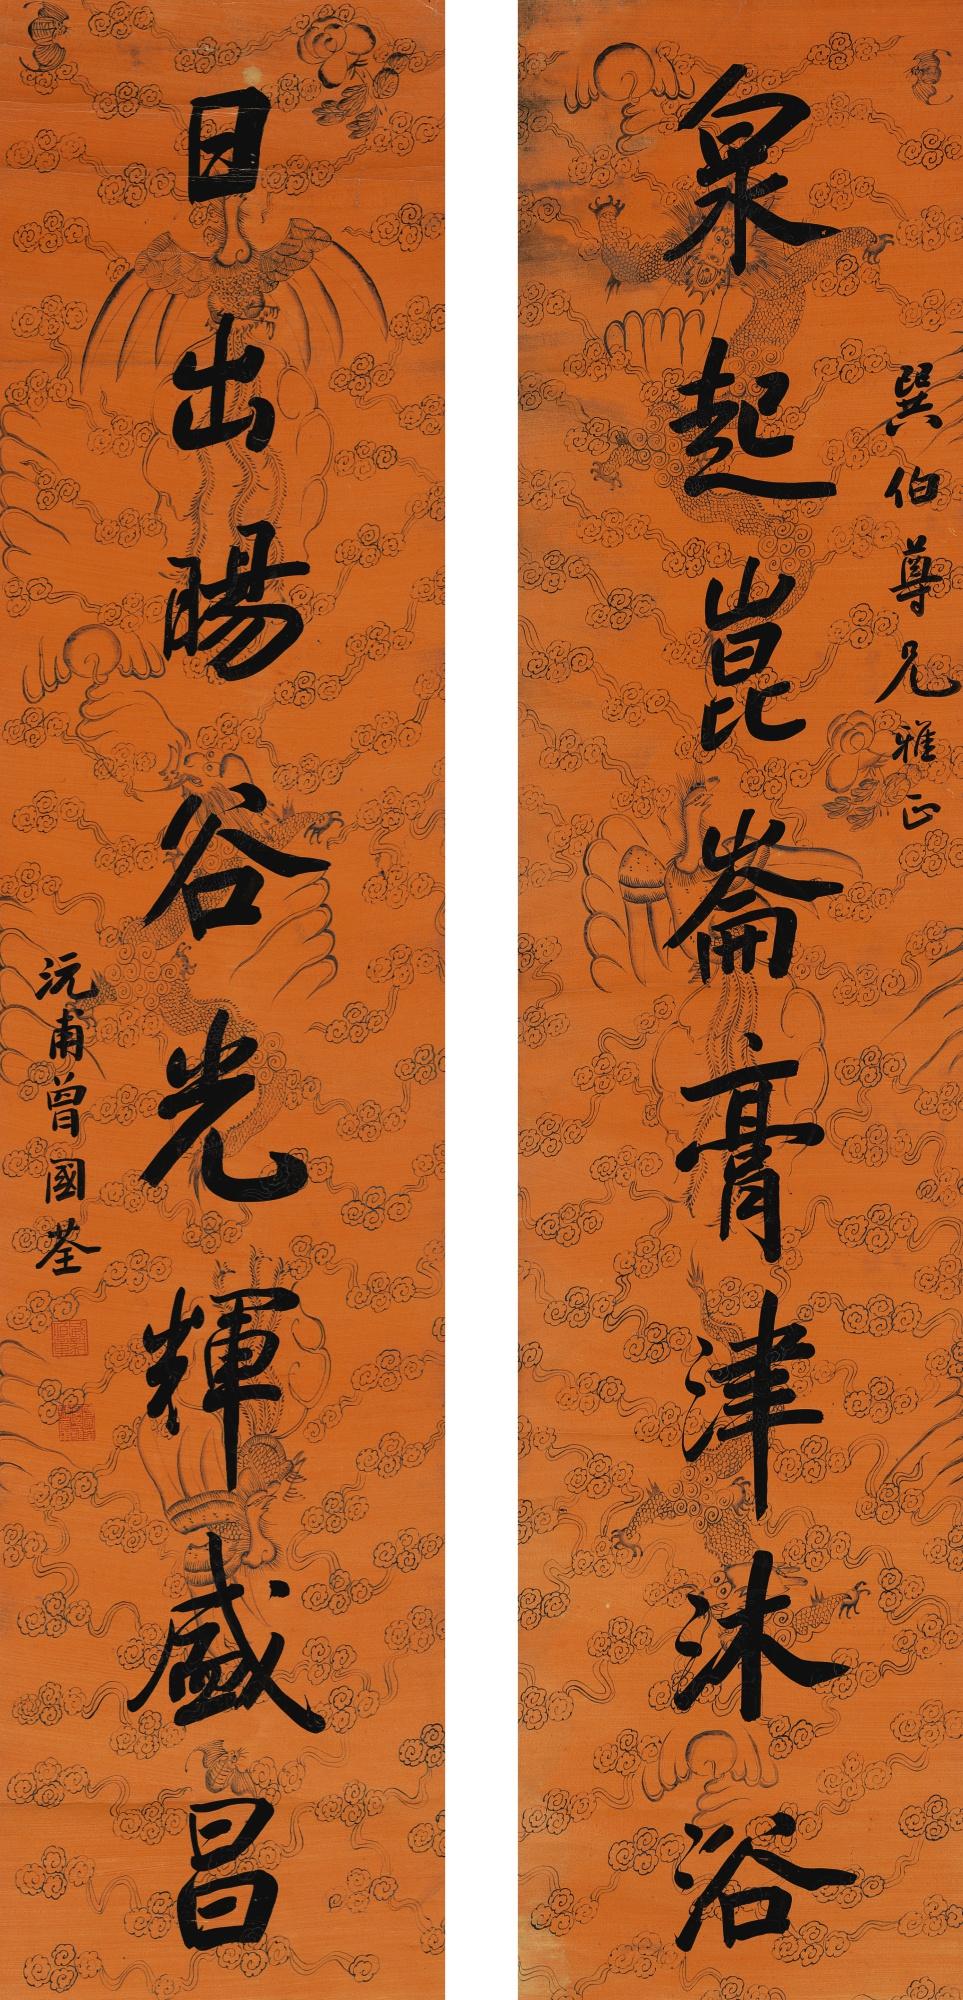 巽伯尊兄雅正
泉起崑崙膏津沐浴
日出暘谷光輝盛昌
沅甫曾國荃